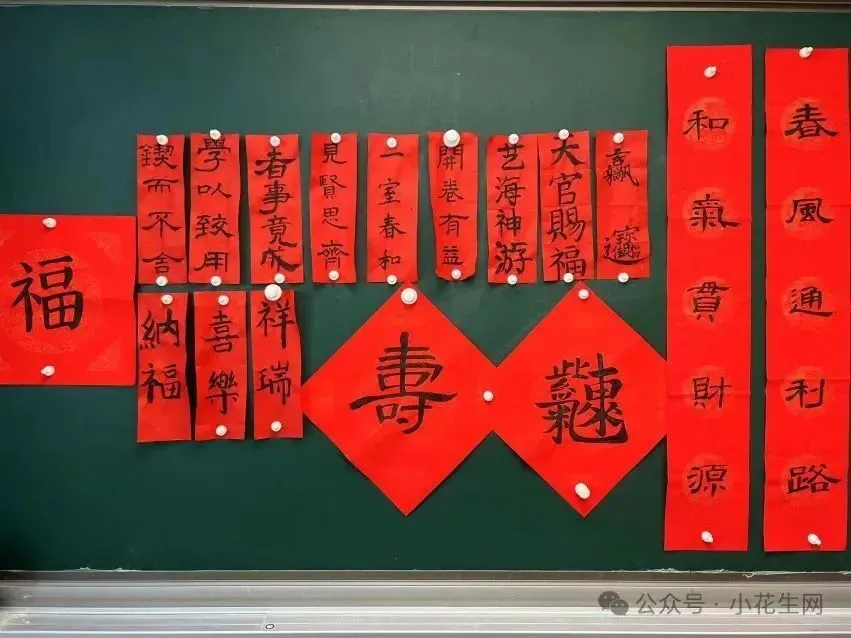 福
鍥而不舍
學以致用
者事竟成
見賢思齊
一室春和
開卷有益
艺海神游
天官賜福
納福
喜樂
祥瑞
壽
和氣貫財源
春風通利路
公众号·小花生网